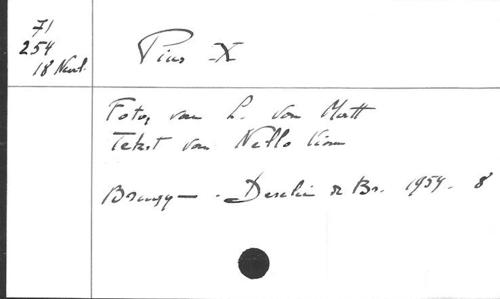 71
254
18 Neerl.
Pius X
Foto's van L. von Matt
Tekst van Nello Vian
Brugge - Desclée De Br. 1954. 8